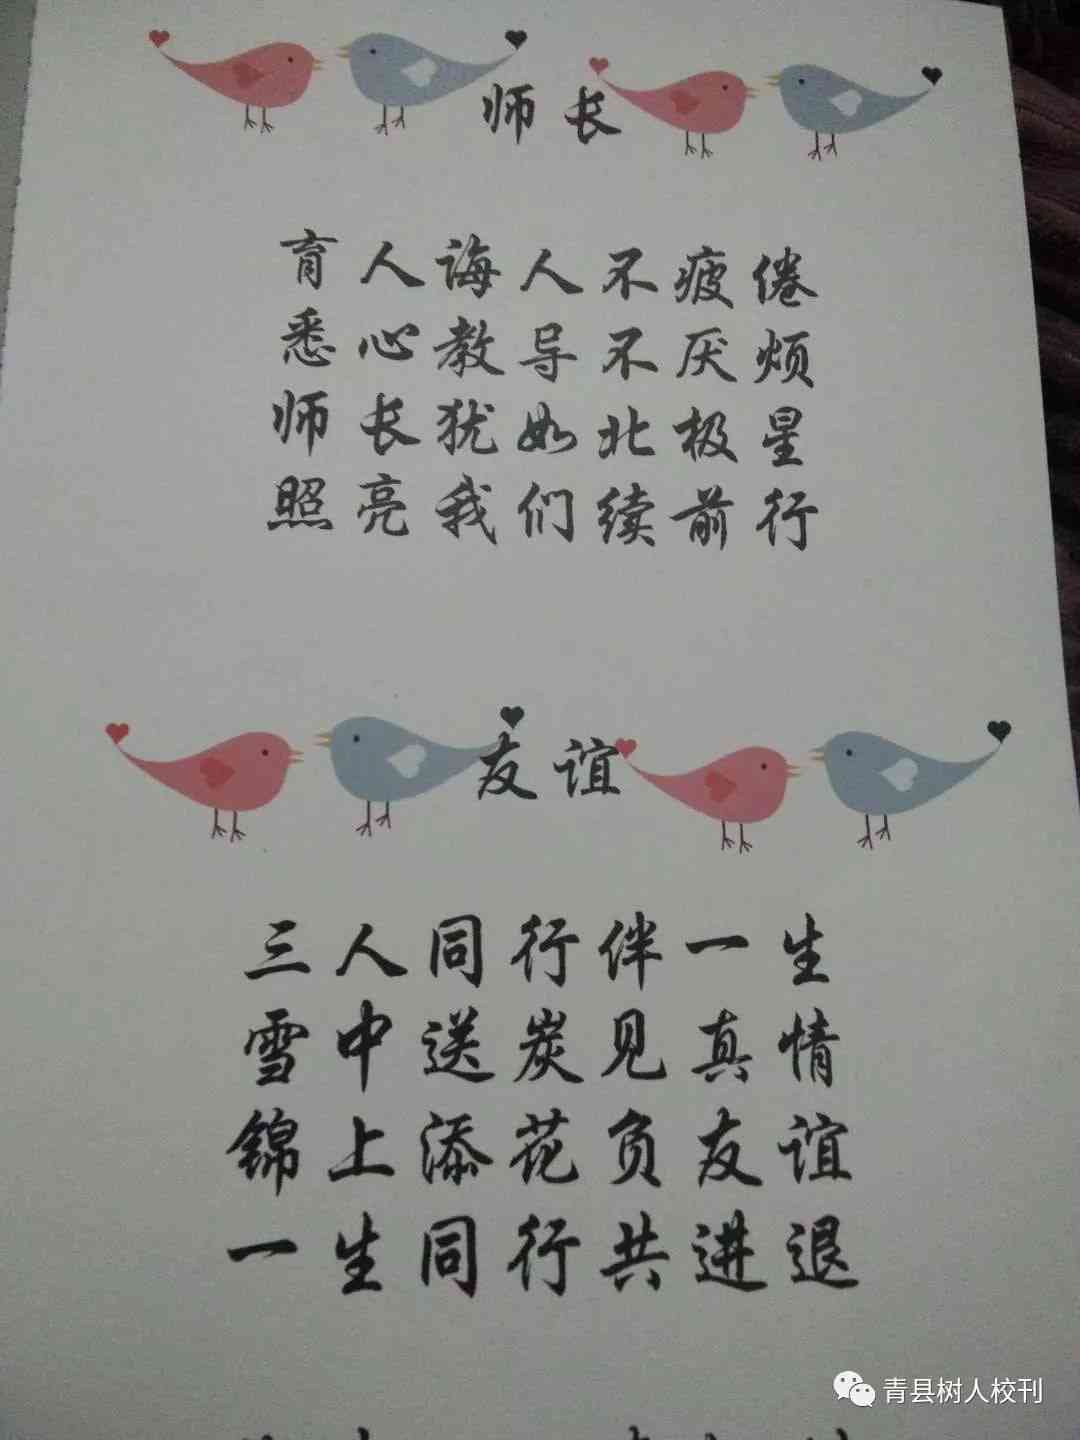 师长
育人诲人不疲倦
悉心教导不厌烦
师长犹如北极星
照亮我们续前行
友谊
三人同行伴一生
雪中送炭见真情
锦上添花负友谊
一生同行共进退
青县树人校刊